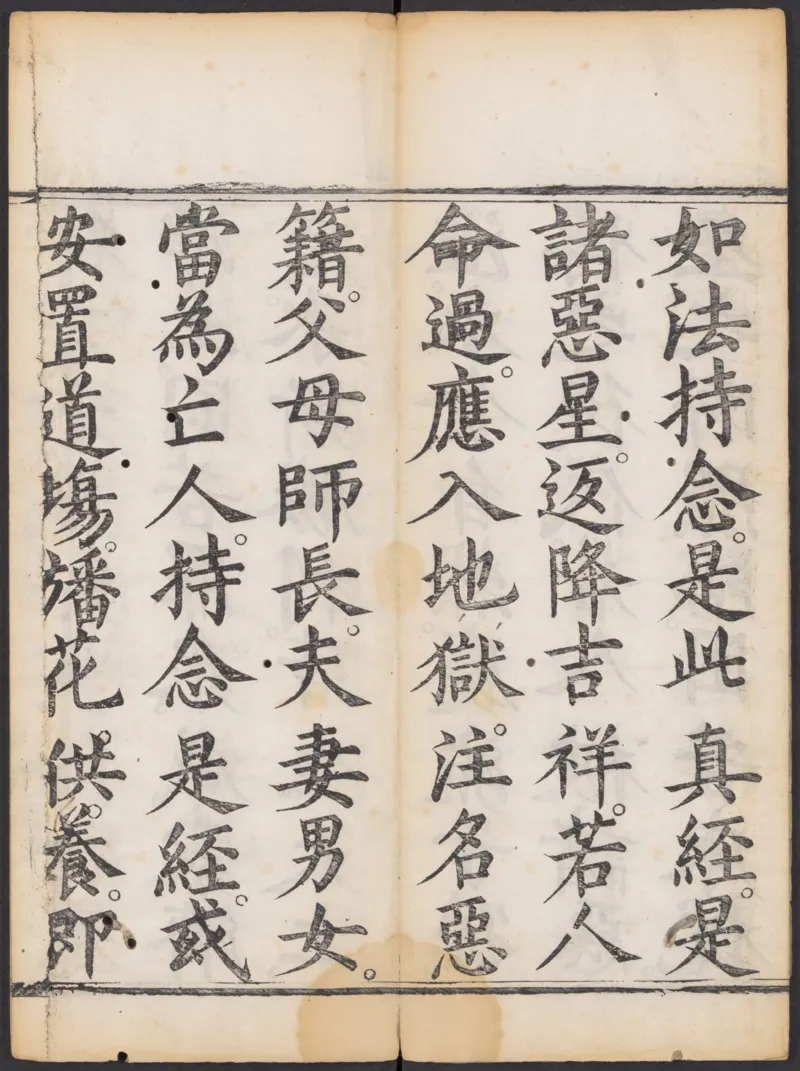 如法持念。是此真経。是
諸惡星。返降吉祥。若人
命過。應入地獄。注名惡
籍。父母師長。夫妻男女。
當為亡人。持念是経。或
安置道塲。旛花供養。即